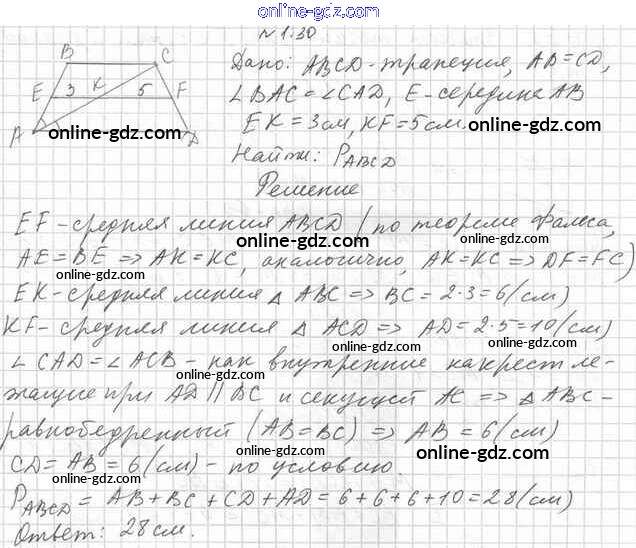 online-gdz.com
№1.30
B C
E 3 K 5 F
A D
online-gdz.com
Дано: ABCD - трапеция, AB=CD,
∠BAC=∠CAD, E - середина AB
EK=3см, KF=5см.
online-gdz.com
Найти: P_ABCD
online-gdz.com
Решение
EF - средняя линия ABCD (по теореме Фалеса,
online-gdz.com
AE=BE => AK=KC, аналогично, AK=KC => DF=FC)
online-gdz.com
EK - средняя линия △ ABC => BC = 2·3=6(см)
online-gdz.com
KF - средняя линия △ ACD => AD=2·5=10(см)
online-gdz.com
∠CAD=∠ACB - как внутренние накрест ле-
online-gdz.com
жащие при AD || BC и секущей AC => △ ABC -
online-gdz.com
равнобедренный (AB=BC) => AB = 6(см)
online-gdz.com online-gdz.com
CD= AB = 6(см) - по условию.
online-gdz.com
P_ABCD = AB+BC+CD+AD=6+6+6+10=28(см)
online-gdz.com online-gdz.com
Ответ: 28см.
online-gdz.com